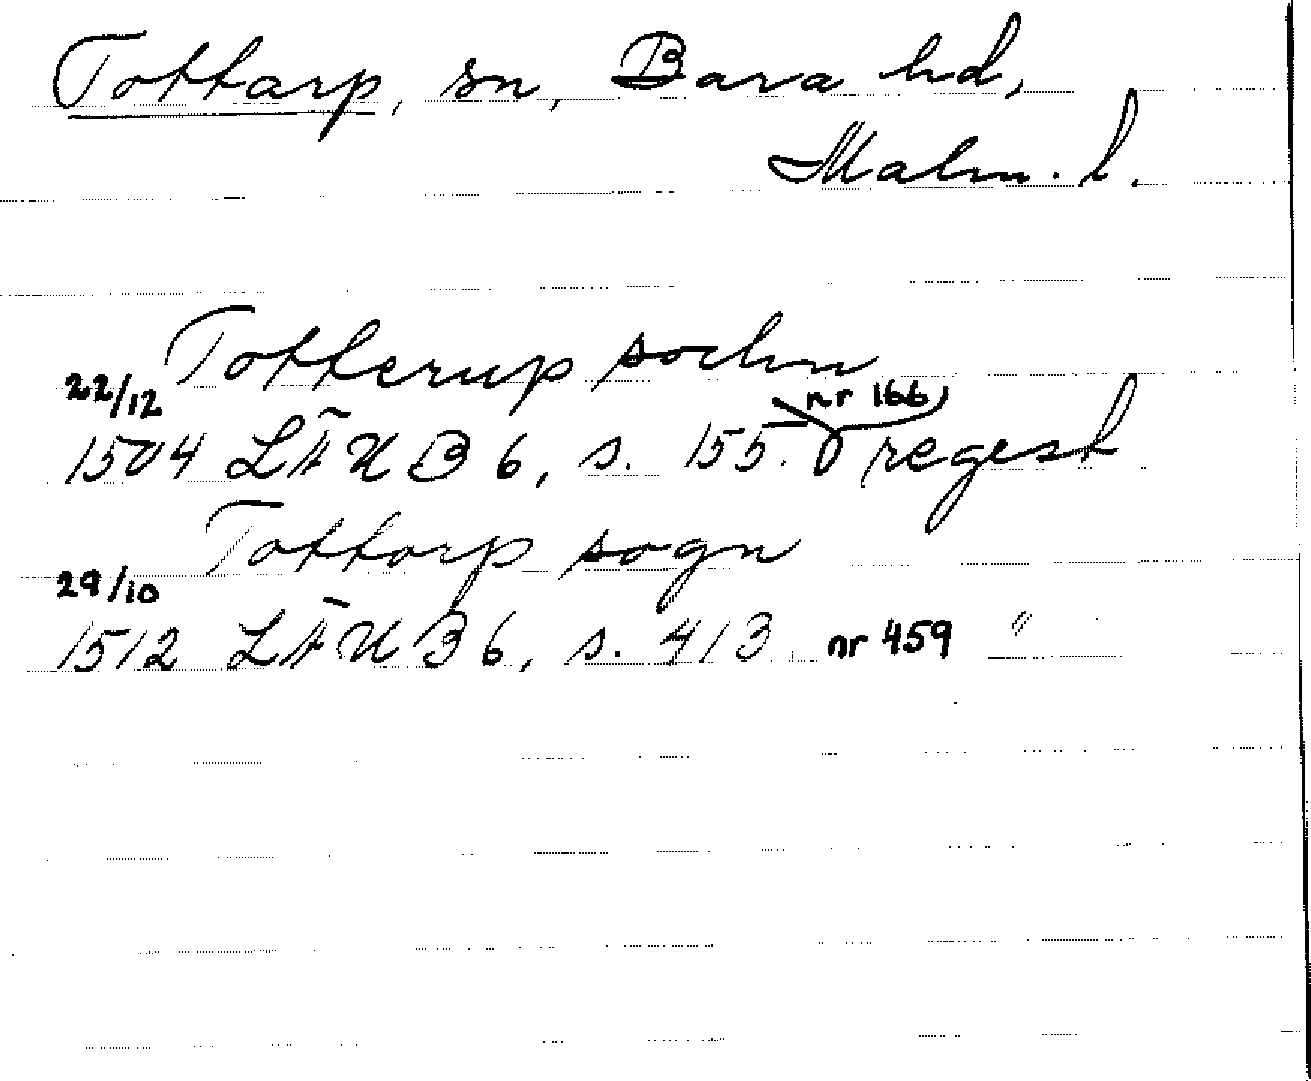 Tottarp, sn, Bara hd,
Malm. l.
Totterup sochn
22/12
1504 LÄUB 6, s. 155. nr 166 regest
Tottorp sogn
29/10
1512 LÄUB 6, s. 413 nr 459 "